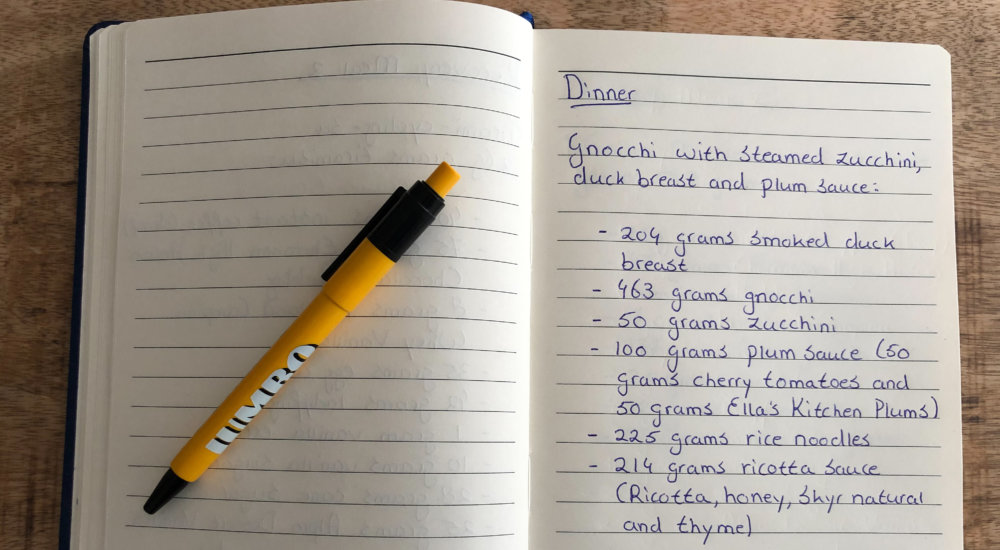 Dinner
Gnocchi with steamed zucchini,
duck breast and plum sauce:
- 204 grams smoked duck
breast
- 463 grams gnocchi
- 50 grams zucchini
- 100 grams plum sauce (50
grams cherry tomatoes and
50 grams Ella's Kitchen Plums)
- 225 grams rice noodles
- 214 grams ricotta sauce
(Ricotta, honey, Skyr natural
and thyme)